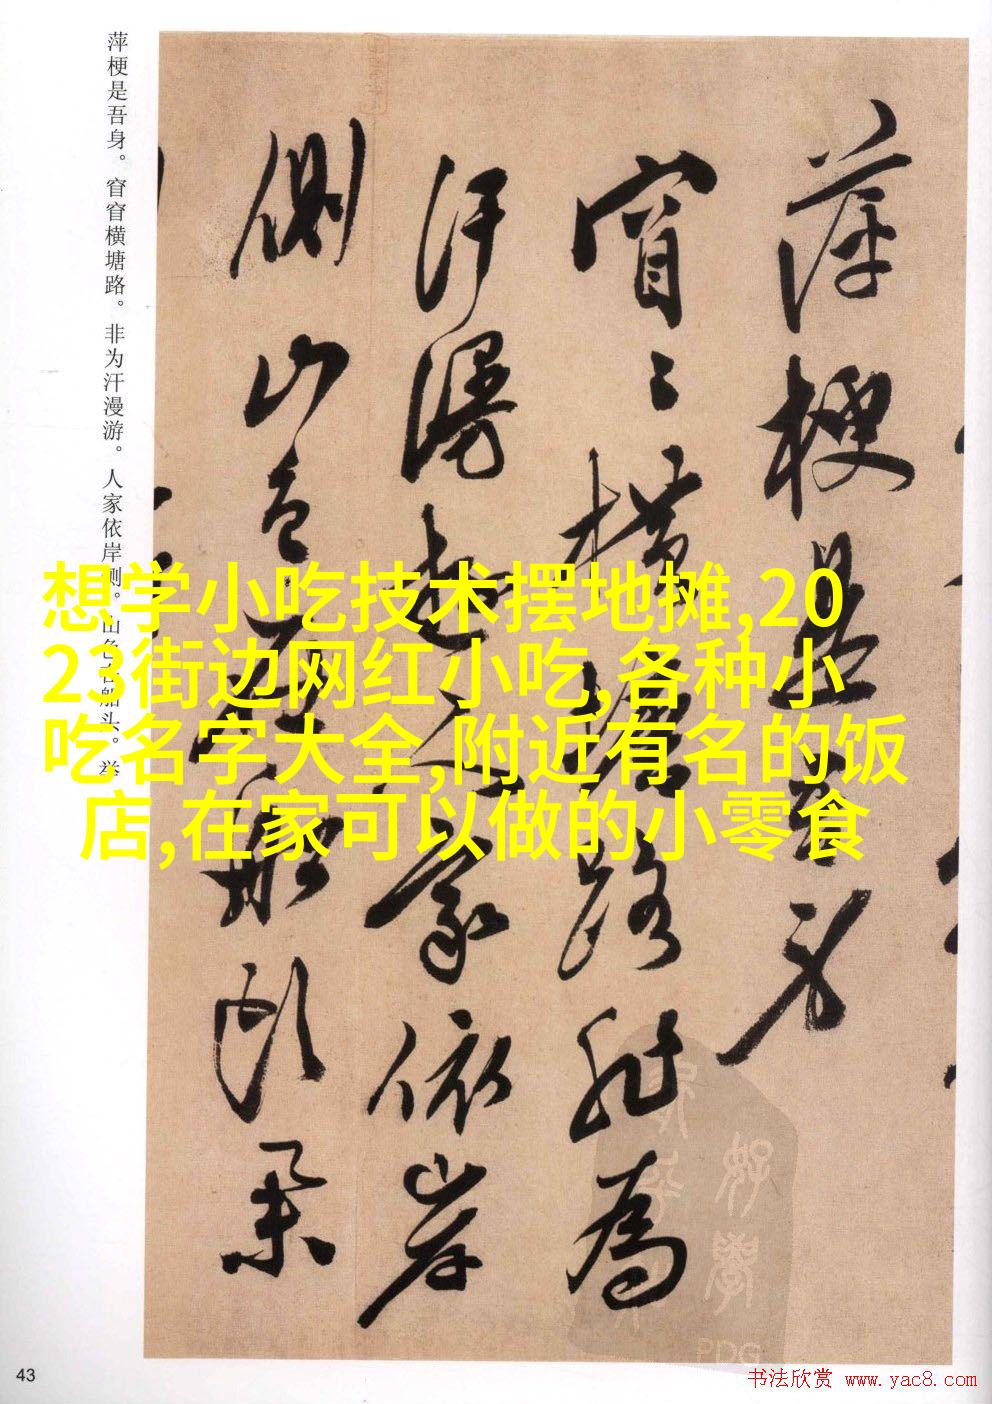 萍梗是吾身
窅〻橫塘路非為
汗漫遊人家依岸
側山色在船頭
萍梗是吾身。窅窅横塘路。非为汗漫游。人家依岸侧。山色在船头。举
想学小吃技术摆地摊,20
23街边网红小吃,各种小
吃名字大全,附近有名的饭
店,在家可以做的小零食
PDG
43
书法欣赏 www.yac8.com